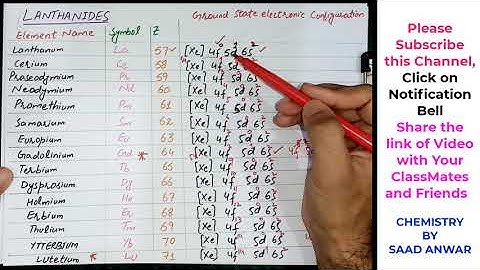 LANTHANIDES Ground State electronic Configuration
Element Name Symbol Z
Lanthanum La 57 [Xe] 4f 5d 6s²
Cerium Ce 58 [Xe] 4f 5d 6s
Praseodymium Pr 59 [Xe] 4f 5d 6s
Neodymium Nd 60 [Xe] 4f 5d 6s
Promethium Pm 61 [Xe] 4f 5d 6s
Samarium Sm 62 [Xe] 4f 5d 6s
Europium Eu 63 [Xe] 4f 5d 6s
Gadolinium Gd * 64 [Xe] 4f 5d 6s
Terbium Tb 65 [Xe] 4f 5d 6s
Dysprosium Dy 66 [Xe] 4f 5d 6s
Holmium Ho 67 [Xe] 4f 5d 6s
Erbium Er 68 [Xe] 4f 5d 6s
Thulium Tm 69 [Xe] 4f 5d 6s
YTTERBIUM Yb 70 [Xe] 4f 5d 6s
Lutetium * Lu 71 [Xe] 4f 5d 6s
Please
Subscribe
this Channel,
Click on
Notification
Bell
Share the
link of Video
with Your
ClassMates
and Friends
CHEMISTRY
BY
SAAD ANWAR